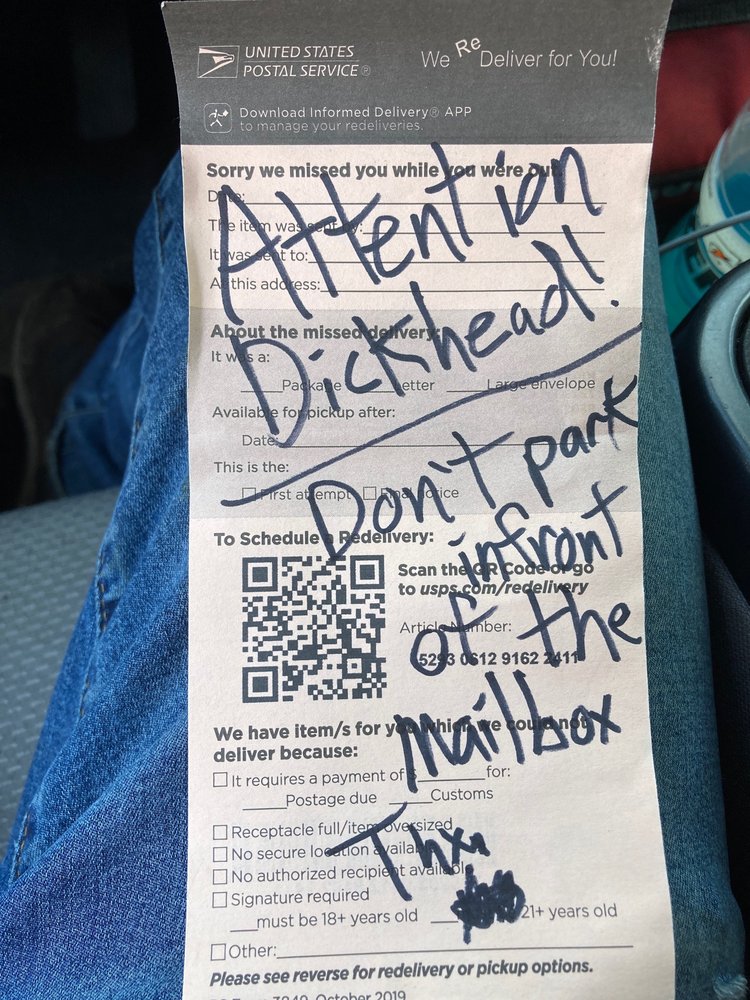 UNITED STATES
POSTAL SERVICE®
We Re Deliver for You!
Download Informed Delivery® APP
to manage your redeliveries.
Sorry we missed you while you were out.
Date:
The item was sent by:
It was sent to:
At this address:
Attention
Dickhead!
About the missed delivery:
It was a:
Package Letter Large envelope
Available for pickup after:
Date:
This is the:
First attempt Final Notice
Don't park
infront
of the
Mailbox
Thx
To Schedule a Redelivery:
Scan the QR Code or go
to usps.com/redelivery
Article Number:
5293 0612 9162 2411
We have item/s for you which we could not
deliver because:
It requires a payment of $ for:
Postage due Customs
Receptacle full/item oversized
No secure location available
No authorized recipient available
Signature required
must be 18+ years old 21+ years old
Other:
Please see reverse for redelivery or pickup options.
PS Form 3849, October 2019